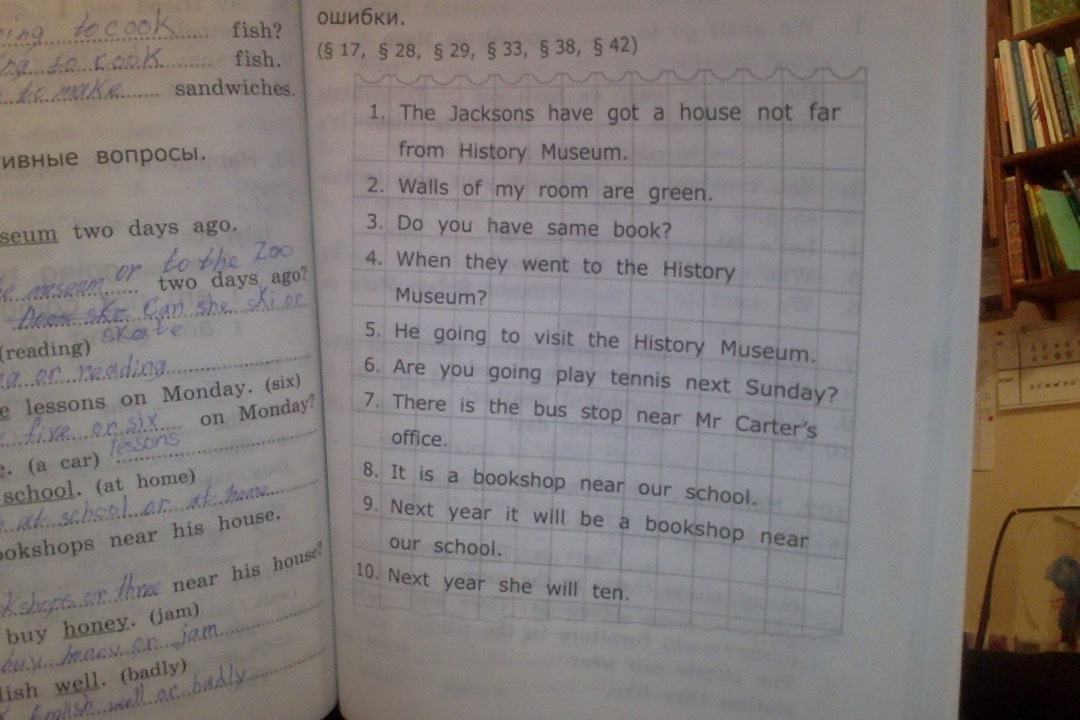 ing to cook fish?
ing to cook fish.
to make sandwiches.
тивные вопросы.
seum two days ago.
museum or to the Zoo
two days ago?
Can she ski or
skate
(reading)
or reading
lessons on Monday. (six)
five or six on Monday?
lessons
(a car)
school. (at home)
at school or at home
ookshops near his house.
kshops or three near his house?
buy honey. (jam)
buy honey or jam
lish well. (badly)
English well or badly
ошибки.
(§ 17, § 28, § 29, § 33, § 38, § 42)
1. The Jacksons have got a house not far
from History Museum.
2. Walls of my room are green.
3. Do you have same book?
4. When they went to the History
Museum?
5. He going to visit the History Museum.
6. Are you going play tennis next Sunday?
7. There is the bus stop near Mr Carter's
office.
8. It is a bookshop near our school.
9. Next year it will be a bookshop near
our school.
10. Next year she will ten.